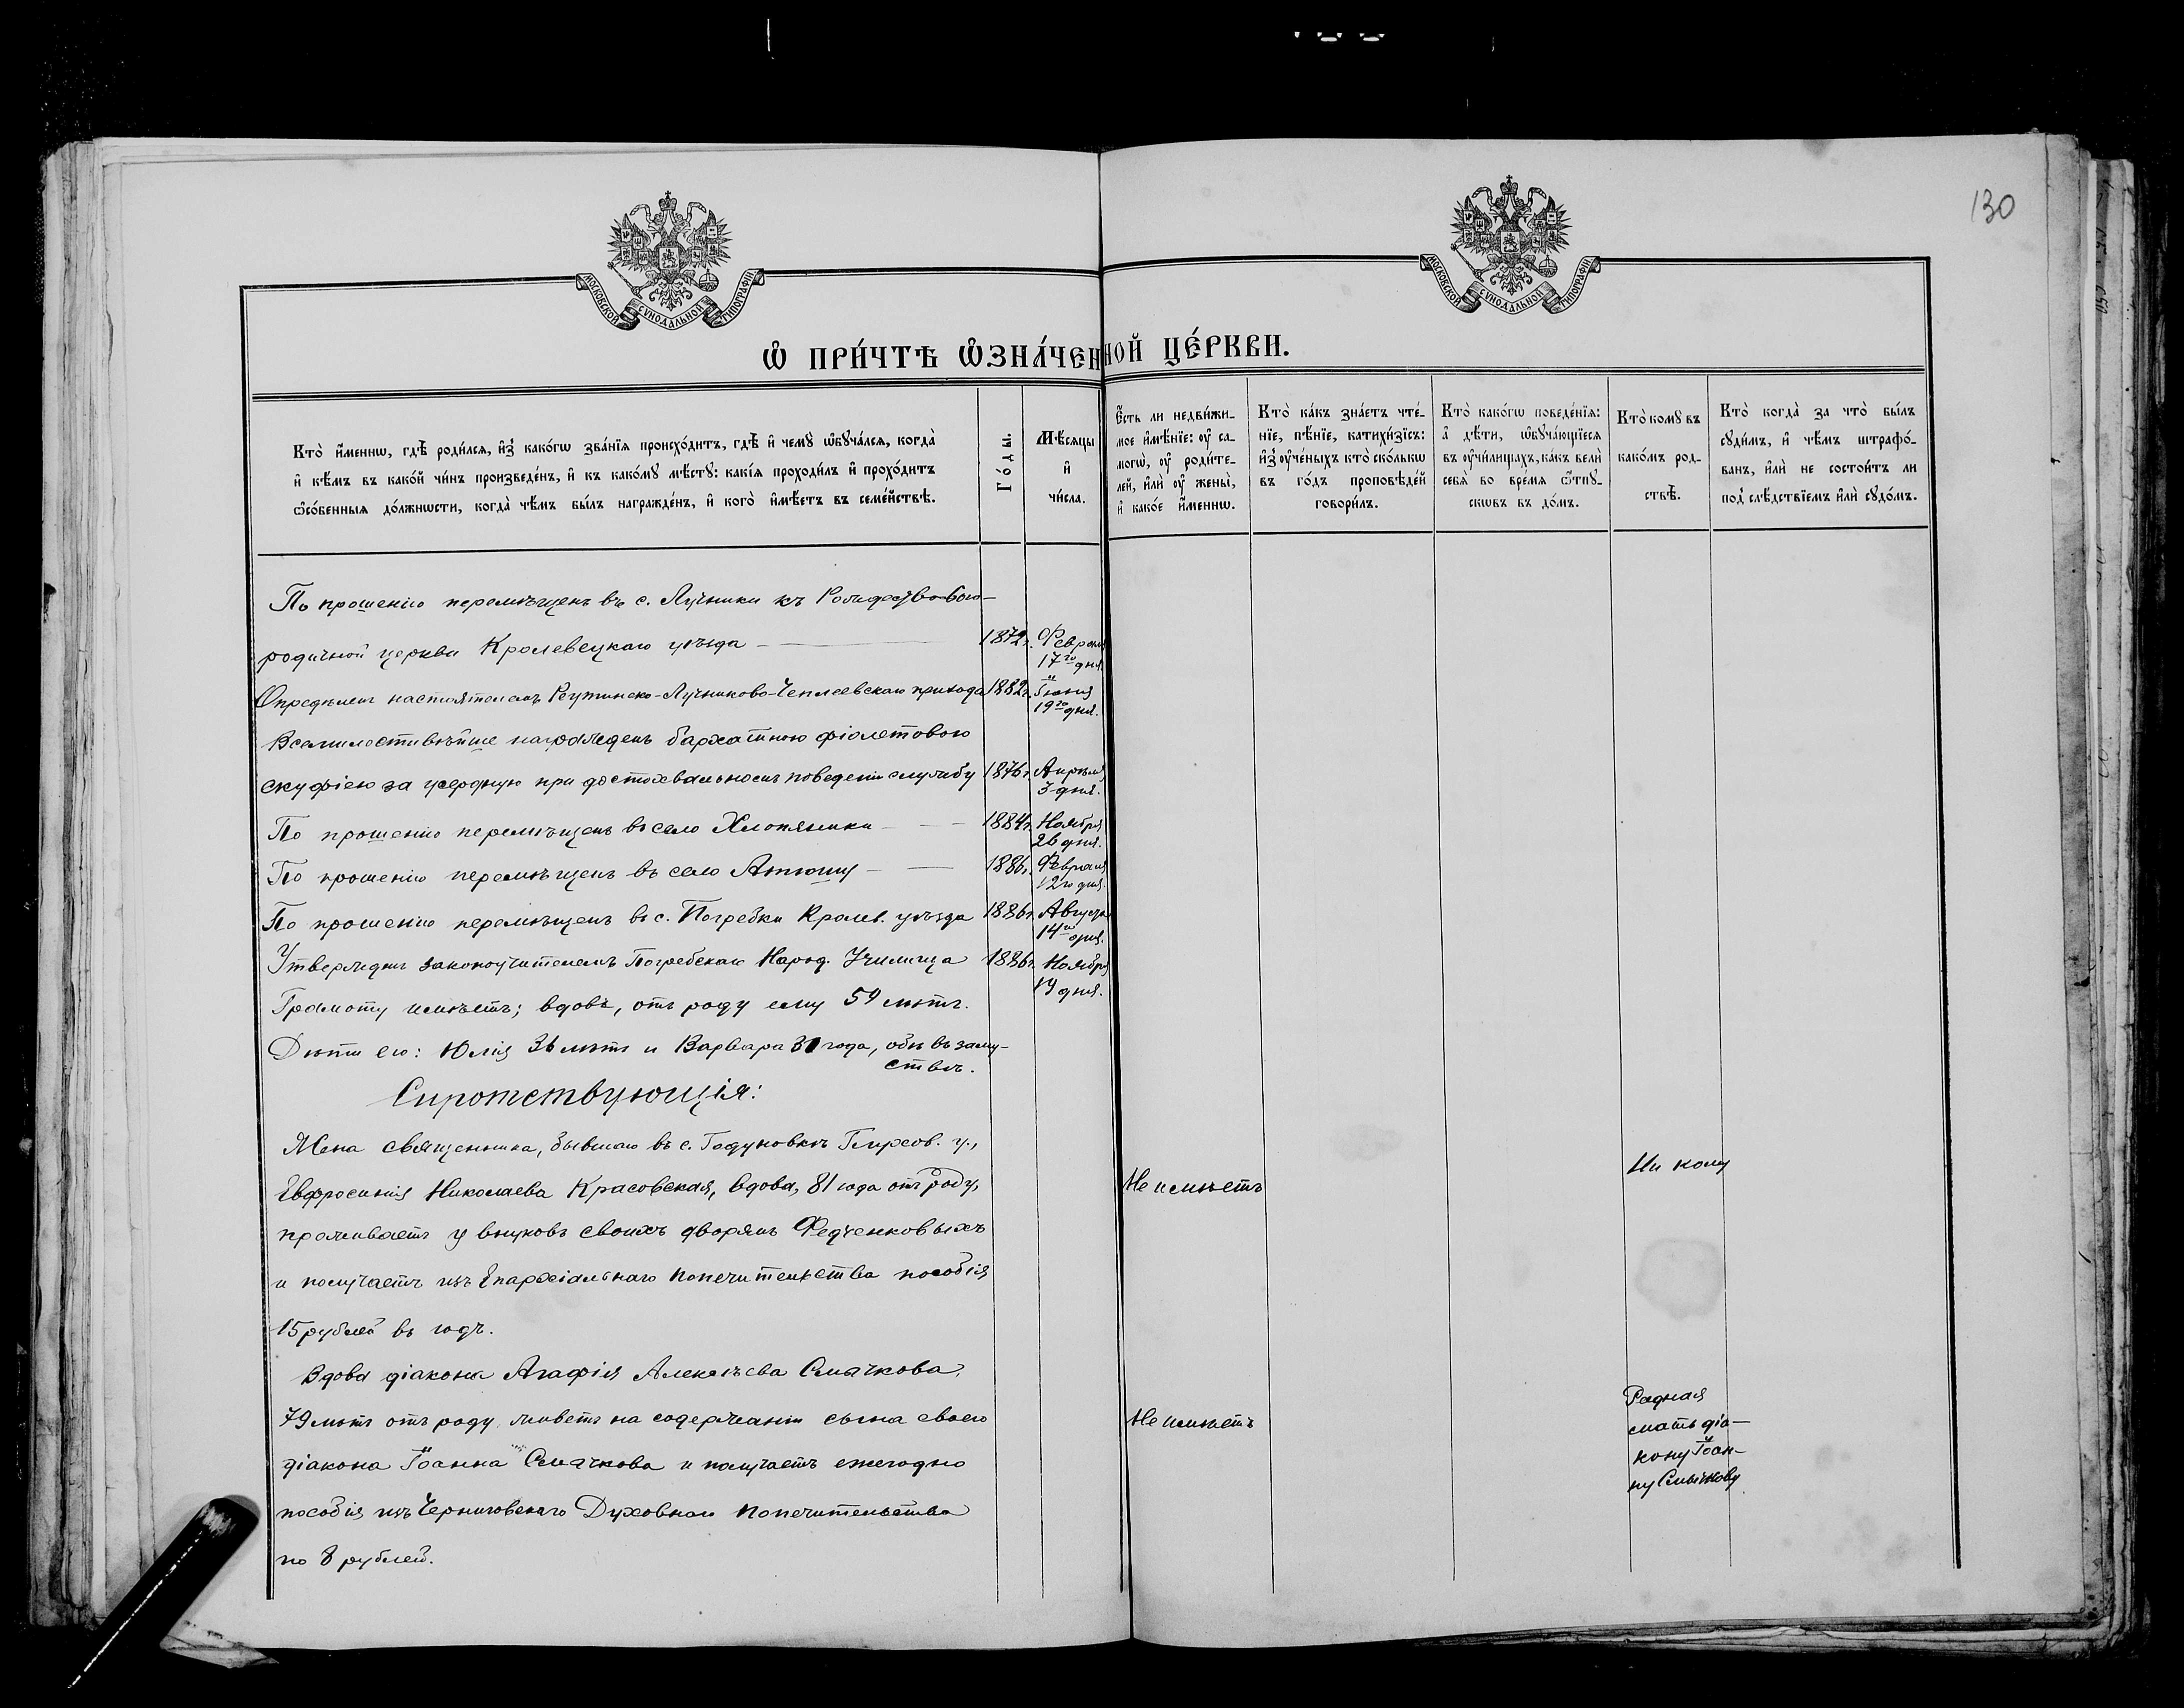 130
МОСКОВСКОЙ СѴНОДАЛЬНОЙ ТИПОГРАФІИ
МОСКОВСКОЙ СѴНОДАЛЬНОЙ ТИПОГРАФІИ
Ѡ҆ ПРИ́ЧТѢ Ѡ҆ЗНА́ЧЕННОЙ ЦЕ́РКВИ.
Кто̀ и҆́меннѡ, гдѣ̀ роди́лся, и҆з̾ како́гѡ зва́нїя происхо́дитъ, гдѣ̀ и҆ чемꙋ̀ ѡ҆бꙋча́лся, когда̀
и҆ кѣ́мъ въ како́й чи́нъ произведе́нъ, и҆ къ како́мꙋ мѣ́стꙋ: какі́я проходи́лъ и҆ прохо́дитъ
ѻ҆со́бенныя до́лжнѡсти, когда̀ чѣ́мъ бы́лъ награжде́нъ, и҆ кого̀ и҆мѣ́етъ въ семе́йствѣ.
Го́ды.
Мѣ́сяцы
и҆
чи́сла.
Є҆́сть ли недви́жи-
мое и҆мѣ́нїе: ᲂу҆ са-
могѡ̀, ᲂу҆ роди́те-
лей, и҆лѝ ᲂу҆ жены̀,
и҆ како́е и҆́меннѡ.
Кто̀ ка́къ зна́етъ чте́-
нїе, пѣ́нїе, катихи́зїсъ:
и҆з̾ ᲂу҆че́ныхъ кто̀ ско́лькѡ
въ го́дъ проповѣ́дей
говори́лъ.
Кто̀ како́гѡ поведе́нїя:
а҆ дѣ́ти, ѡ҆бꙋча́ющїеся
въ ᲂу҆чи́лищахъ, ка́къ велѝ
себѧ̀ во вре́мя ѿпꙋ-
скѡвъ въ до́мъ.
Кто̀ комꙋ̀ въ
како́мъ род-
ствѣ̀.
Кто̀ когда̀ за что̀ бы́лъ
сꙋди́мъ, и҆ чѣ́мъ штрафо́-
ванъ, и҆лѝ не состои́тъ ли
под̾ слѣ́дствїемъ и҆лѝ сꙋдо́мъ.
По прошенію перемѣщенъ въ с. Лучники къ Рождество-Бого-
родичной церкви Кролевецкаго уѣзда 1872г. Февраля
17го дня.
Опредѣленъ настоятелемъ Реутинско-Лучниково-Чеплеевскаго прихода 1882г. Іюня
19го дня.
Всемилостивѣйше награжденъ бархатною фіолетовою
скуфіею за усердную при достохвальномъ поведеніи службу 1876г. Апрѣля
3 дня.
По прошенію перемѣщенъ въ село Хлопяники 1884г. Ноября
26 дня.
По прошенію перемѣщенъ въ село Атюшу 1886г. Февраля
12го дня.
По прошенію перемѣщенъ въ с. Погребки Кролев. уѣзда 1886г. Августа
14го дня.
Утвержденъ законоучителемъ Погребскаго Народ. Училища 1886г. Ноября
19 дня.
Грамоту имѣетъ; вдовъ, отъ роду ему 59 лѣтъ.
Дѣти его: Юлія 36 лѣтъ и Варвара года, обѣ въ заму-
ствѣ.
Сиротствующія:
Жена священника, бывшаго въ с. Годуновкѣ Глухов. у.,
Евфросинія Николаева Красовская, вдова, 81 года отъ роду,
проживаетъ у внуковъ своихъ дворянъ Федченковыхъ
и получаетъ изъ Епархіальнаго попечительства пособія
15 рублей въ годъ.
Не имѣетъ
Ни кому
Вдова діакона Агафія Алексѣева Смачкова,
79 лѣтъ отъ роду, живетъ на содержаніи сына своего
діакона Іоанна Смачкова и получаетъ ежегодно
пособія изъ Черниговскаго Духовнаго попечительства
по 8 рублей.
Не имѣетъ
Родная
мать діа-
кону Іоан-
ну Смычкову